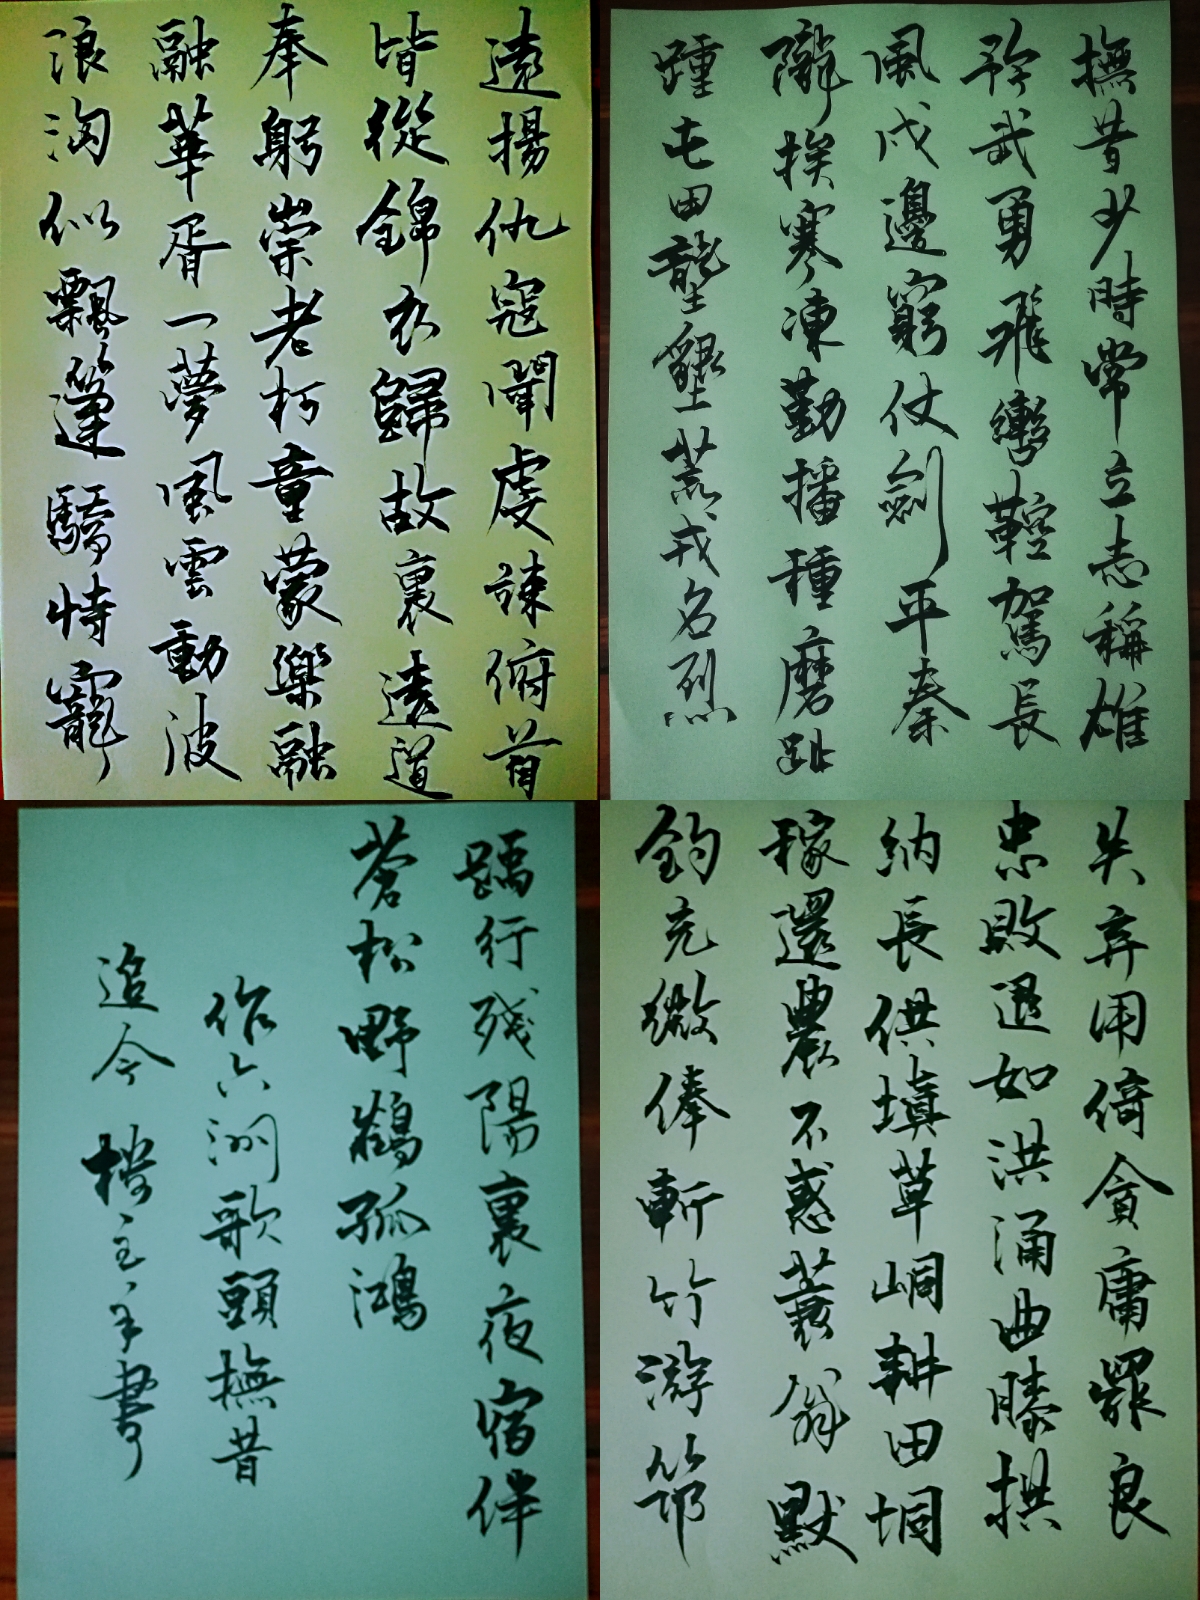 撫昔少時常立志稱雄
矜武勇飛轡鞚駕長
風戍邊窮仗劍平秦
隴挨寒凍勤播種磨趾
踵屯田壟墾荒戎名烈
遠揚仇寇闻虔竦俯首
皆從錦衣歸故裏遠道
奉躬崇老柯童蒙樂融
融華胥一夢風雲動波
浪淘似飄篷驕恃寵
失弃用倚貪庸罷良
忠敗退如洪涌曲膝拱
納長供填草峒耕田垌
稼還農不惑蓑翁默
鈞充微俸斬竹游筇
踽行殘陽裏夜宿伴
蒼松野鶴孤鴻
作六洲歌頭撫昔
追今 樓主手書